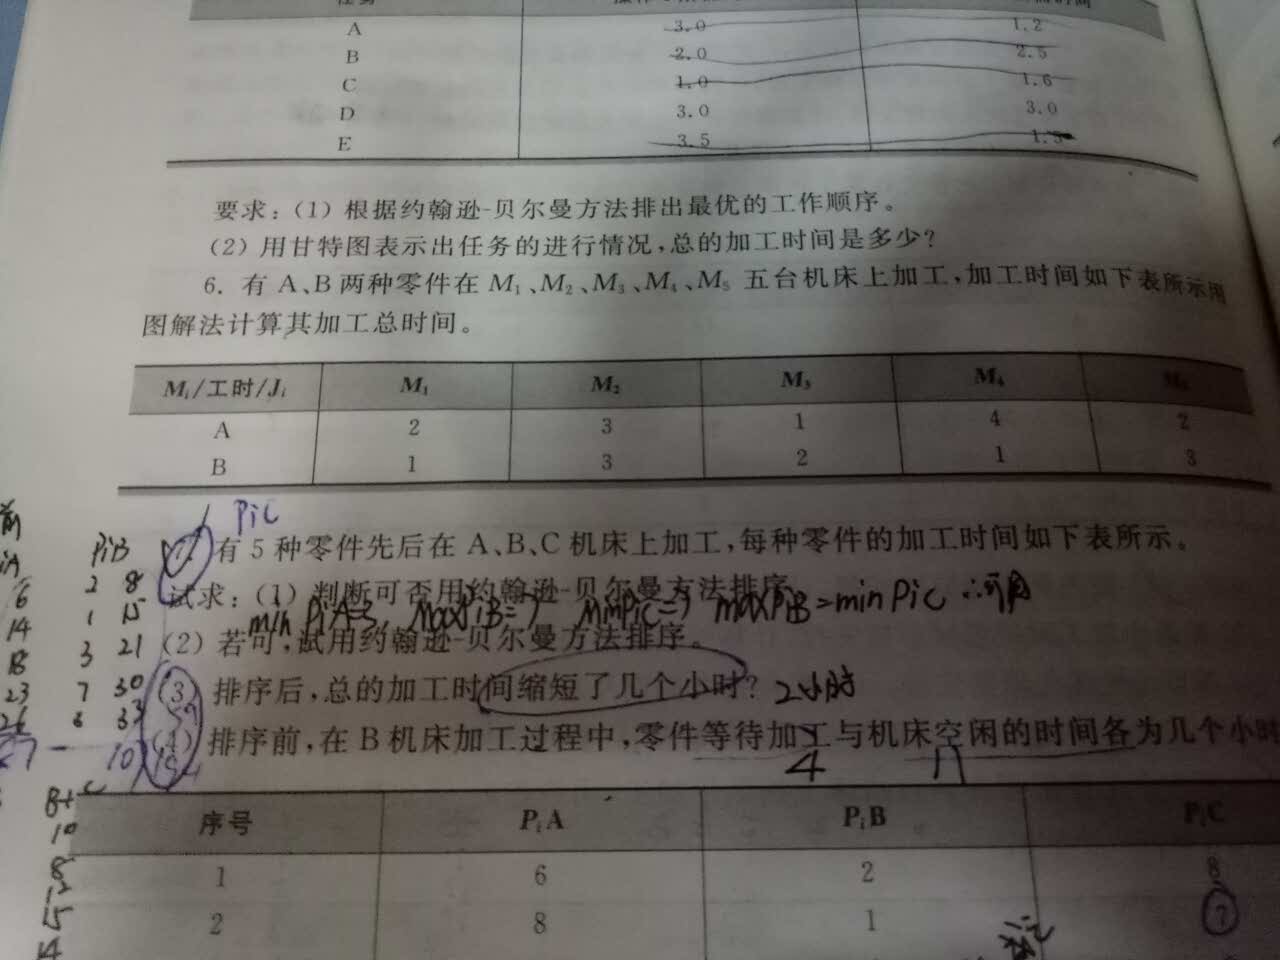 A 3.0 1.2
B 2.0 2.5
C 1.0 1.6
D 3.0 3.0
E 3.5 1.5
要求:(1)根据约翰逊-贝尔曼方法排出最优的工作顺序。
(2)用甘特图表示出任务的进行情况,总的加工时间是多少?
6. 有A、B两种零件在M₁、M₂、M₃、M₄、M₅五台机床上加工,加工时间如下表所示用
图解法计算其加工总时间。
Mᵢ/工时/Jᵢ M₁ M₂ M₃ M₄ M₅
A 2 3 1 4 2
B 1 3 2 1 3
PiC
前 PiB 7. 有5种零件先后在A、B、C机床上加工,每种零件的加工时间如下表所示。
6 2 8 试求:(1)判断可否用约翰逊-贝尔曼方法排序。
min PiA=3, MaxPiB=7 MinPiC=7 maxPiB=minPiC ∴可用
14 1 15 (2)若可,试用约翰逊-贝尔曼方法排序。
18 3 21
23 7 30 (3)排序后,总的加工时间缩短了几个小时? 2小时
26 33
(4)排序前,在B机床加工过程中,零件等待加工与机床空闲的时间各为几个小时
10 4 11
序号 PᵢA PᵢB PᵢC
10
8 1 6 2 8
15 2 8 1 7